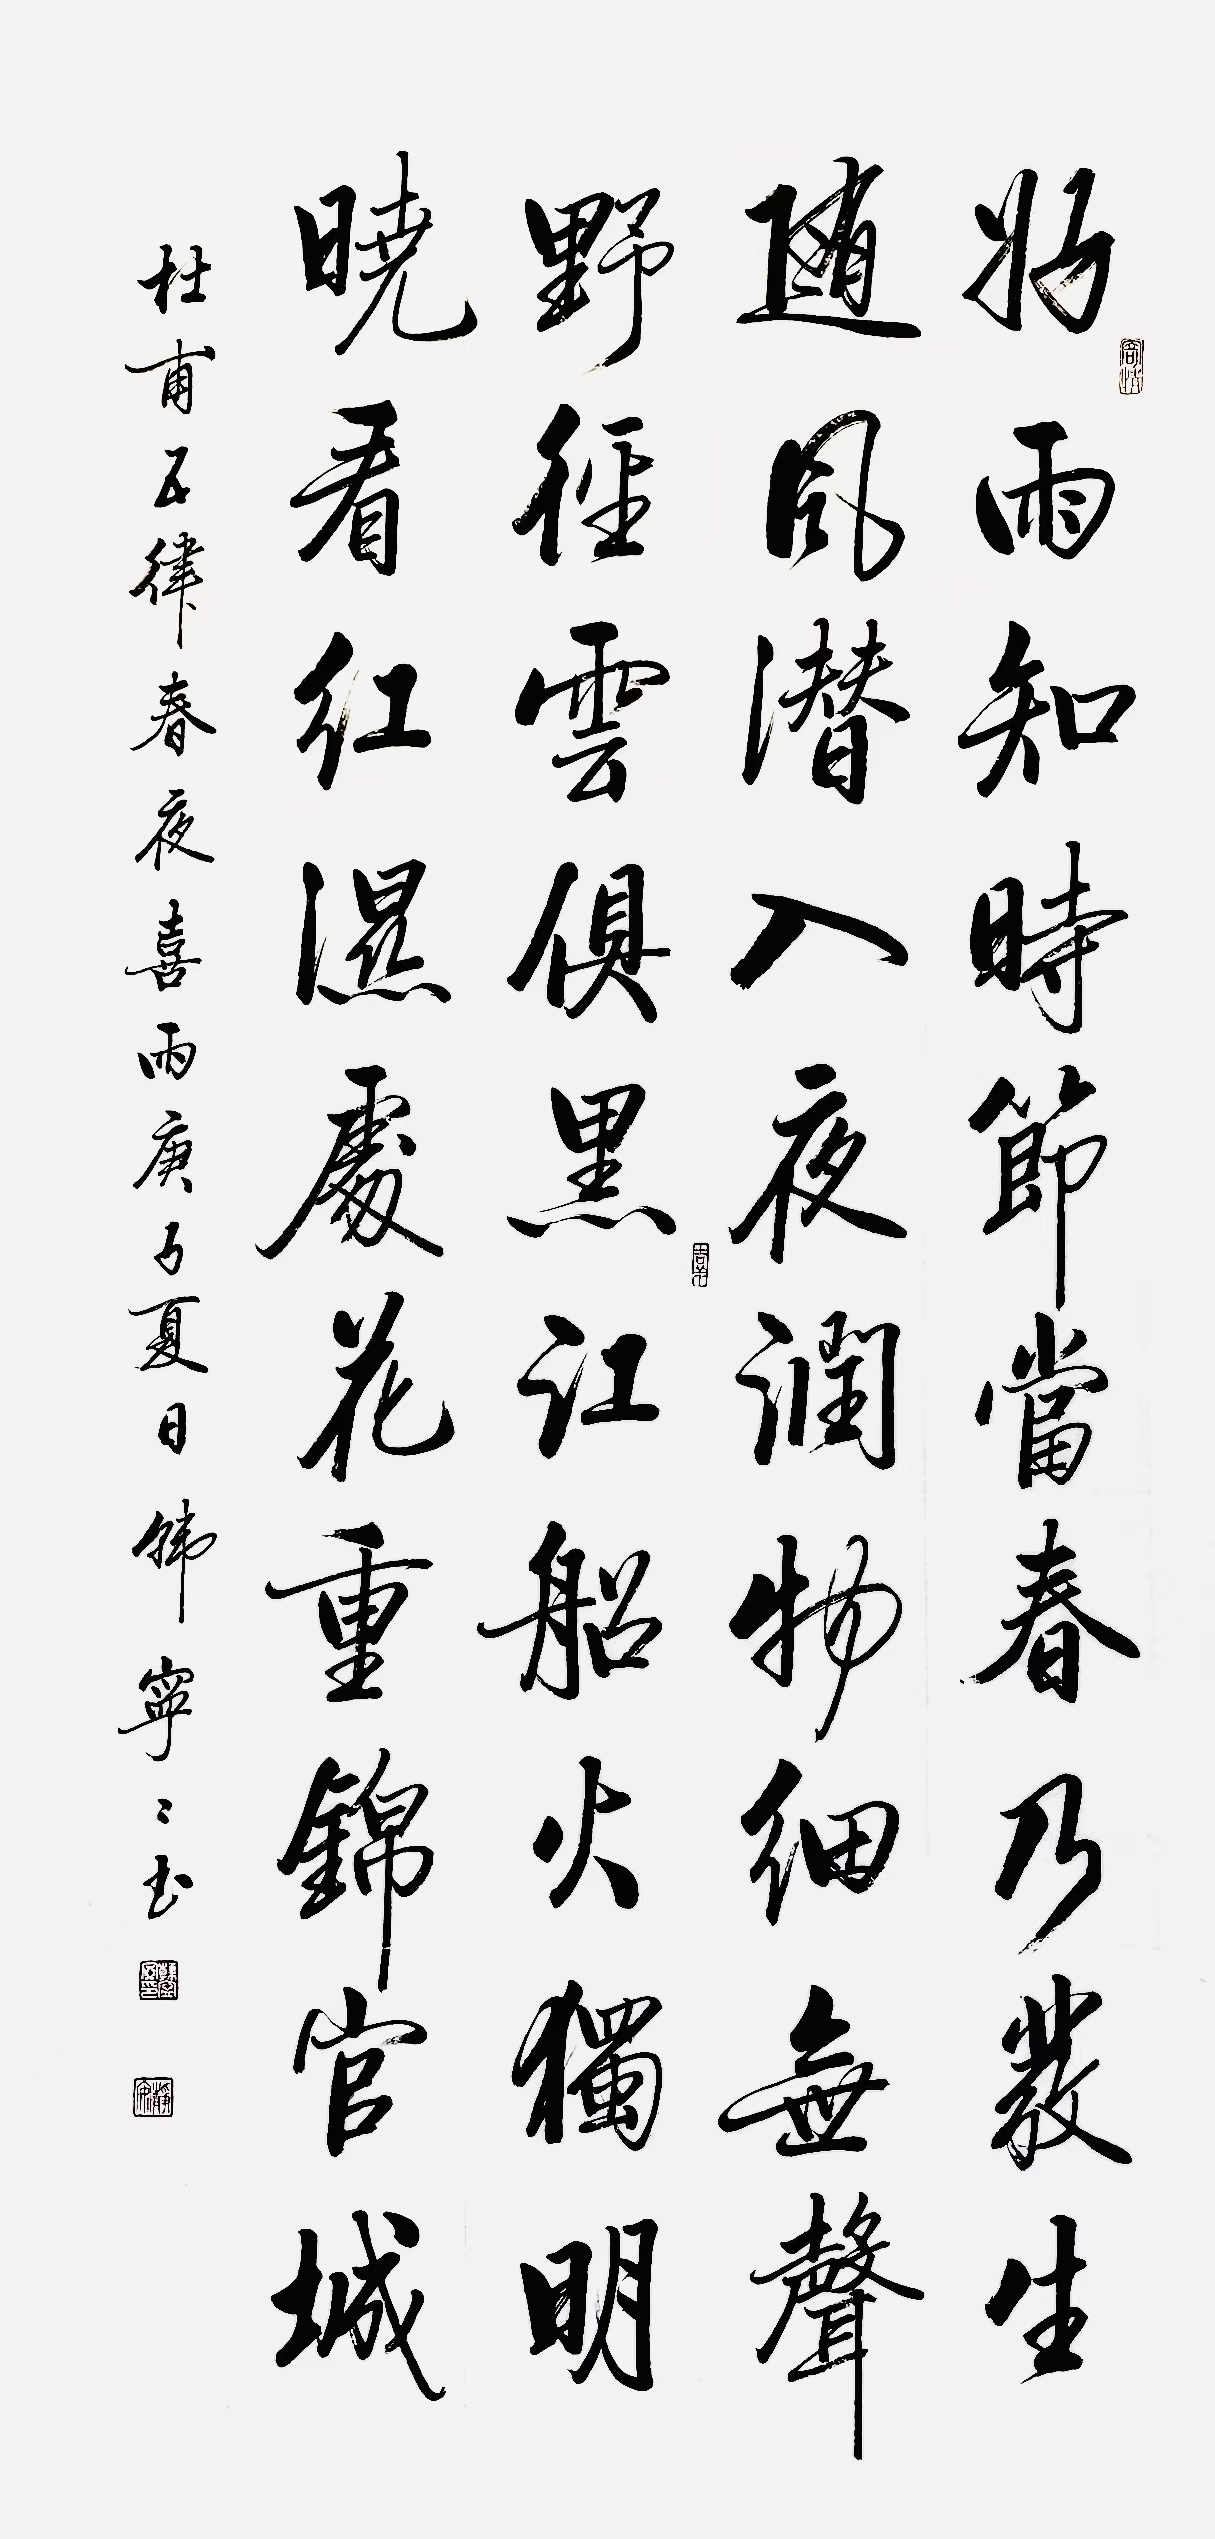 好雨知時節當春乃發生
随風潛入夜潤物細無聲
野徑雲俱黑江船火獨明
曉看紅濕處花重錦官城
杜甫五律春夜喜雨庚子夏日韓寧寧书